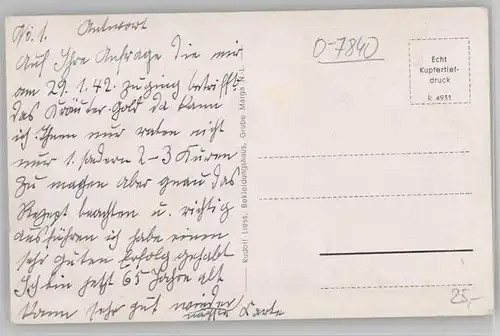 No. 1. Antwort
Auf Ihre Anfrage die mir
am 29.1.42. zuging betrifft
das Kräuter-Gold da kann
ich Ihnen nur raten nicht
nur 1. sodern 2-3 Kuren
zu magen aber genau das
Rezept beachten u. richtig
ausführen ich habe einen
sehr guten Erfolg gehabt
Ich bin jetzt 65 Jahre alt
kann sehr gut wieder
Karte
Rudolf Liess, Bekleidungshaus, Grube Marga N.-L.
O-7840
Echt
Kupfertief-
druck
R 4931
25,-